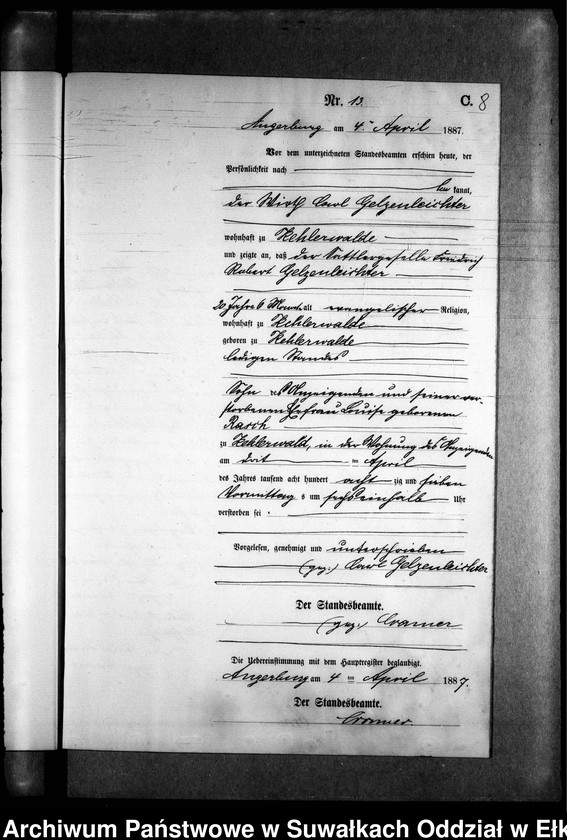 Nr. 13.
C. 8
Angerburg am 4ten April 1887.
Vor dem unterzeichneten Standesbeamten erschien heute, der
Persönlichkeit nach
bekannt,
der Wirth Carl Gelzenleichter
wohnhaft zu Kehlerwalde
und zeigte an, daß der Sattlergeselle Friedrich
Robert Gelzenleichter
20 Jahre 6 Monate alt evangelischer Religion,
wohnhaft zu Kehlerwalde
geboren zu Kehlerwalde
ledigen Standes
Sohn des Anzeigenden und seiner ver-
storbenen Ehefrau Louise geborenen
Rasch
zu Kehlerwald, in der Wohnung des Anzeigenden
am dritten April
des Jahres tausend acht hundert achtzig und sieben
Vormittags um sechseinhalb Uhr
verstorben sei.
Vorgelesen, genehmigt und unterschrieben
(gez.) Carl Gelzenleichter
Der Standesbeamte.
(gez.) Cramer
Die Uebereinstimmung mit dem Hauptregister beglaubigt.
Angerburg am 4ten April 1887.
Der Standesbeamte.
Cramer.
Archiwum Państwowe w Suwałkach Oddział w Ełk